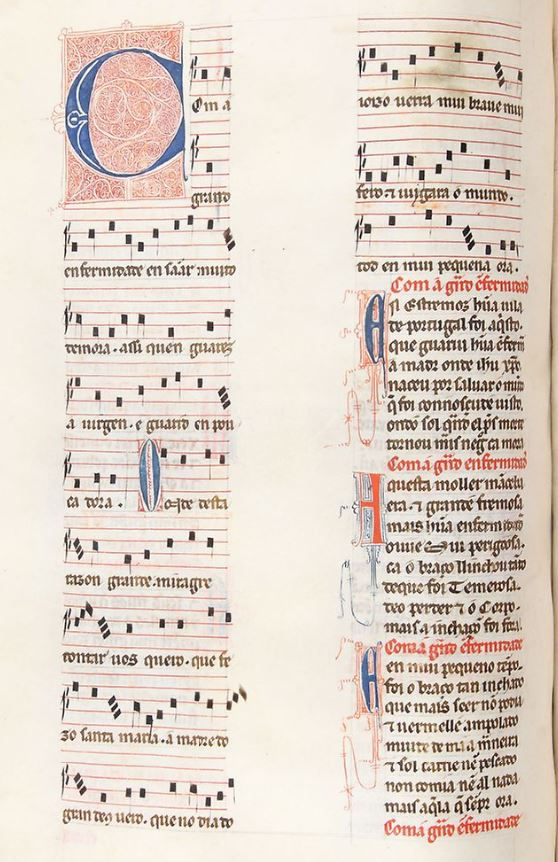 Com a
grand
enfermidade en sãar muito
demora . assi quen guarez
a uirgen . e guarid en pou
ca dora . Onde desta
razon grande miragre
contar uos quero . que fe
zo santa maria . a madre do
gran dey uero . que no dia do
ioizo uerra mui braue mui
fero ⁊ iuygara o mundo .
tod en mui pequena ora .
Com a grãd ẽfermidad
En Estremoz hũa uila
de portugal foi aqsto .
que guariu hũa ẽferm
a madr onde ihu xpõ
naceu por saluar o mũd
q̃ foi connosçudo uisto .
onde o sol qñdo el pˢ mort
tornou mais neg̃ ca mora
Com a grãd enfermidad
Aquesta moller mãceba
era . ⁊ grande fremosa
mais hũa enfermidad
ouue mui perigoosa .
ca o braço ll inchou tãto
de que foi Temerosa .
deo perder ⁊ o Corpo .
mais a inchaço foi fora
Com a grãd ẽfermidade
E en mui pequeno tẽpo .
foi o braço tan inchado
que mais seer nõ podia
⁊ uermello ⁊ ampolado
muit e de maa maneira
⁊ sol carne nẽ pescado
non comia nẽ al nada
mais aq̃la q̃ sẽpr ora .
Com a grãd ẽfermidade